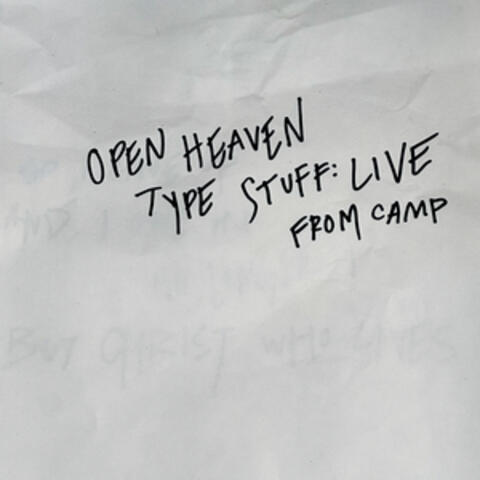 OPEN HEAVEN
TYPE STUFF: LIVE
FROM CAMP
AND I
NO LONGER
BUT CHRIST WHO LIVES